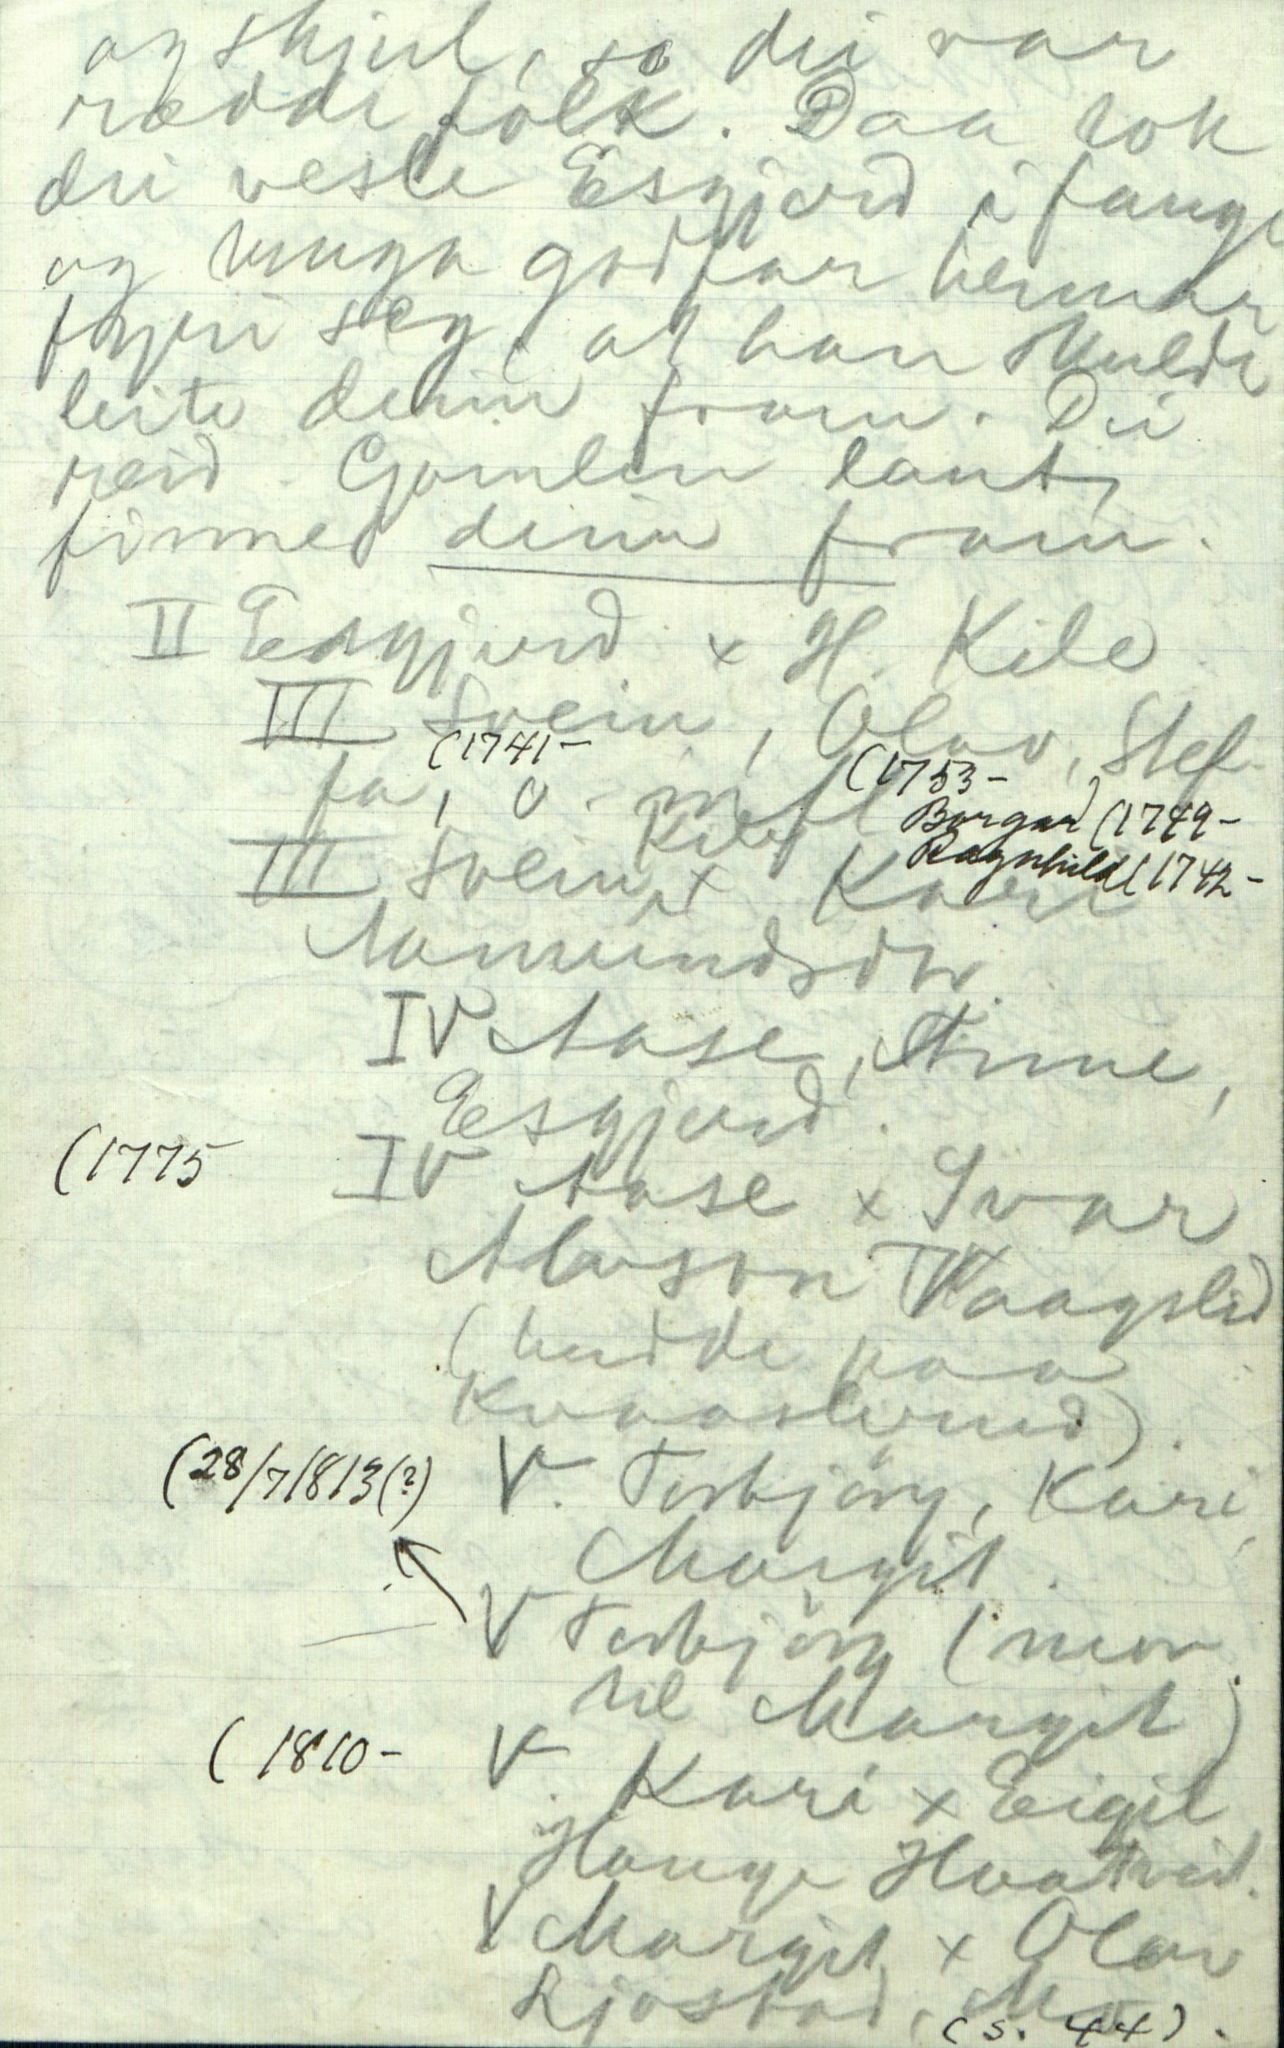 og skjul, so dei var
rædde folk. Daa tok
dei vesle Esgjerd i fange
og tunga godfar hennar
fyrir seg, at han skulde
leite denn fram. Dei
reid Gamlen laut
finne denn fram.
II Esgjerd x H. Kile
III Svein, Olav, Stef-
(1741- (1753-
fa, o. m. fl
Borgar (1749-
Kile Ragnhild (1742-
III Svein x Kari
Aamundsdtr.
IV Aase, Anne,
Esgjerd.
(1775 IV Aase x Ivar
Alvson Vaagslid
(budde paa
Kvaaslund).
(28/7 1813(?) V. Torbjörg, Kari,
Margit.
V Torbjörg (mor
til Margit)
(1810- V. Kari x Eigil
Hauge Hvatveit.
V Margit x Olav
Rjostad, Mo
(s. 44).